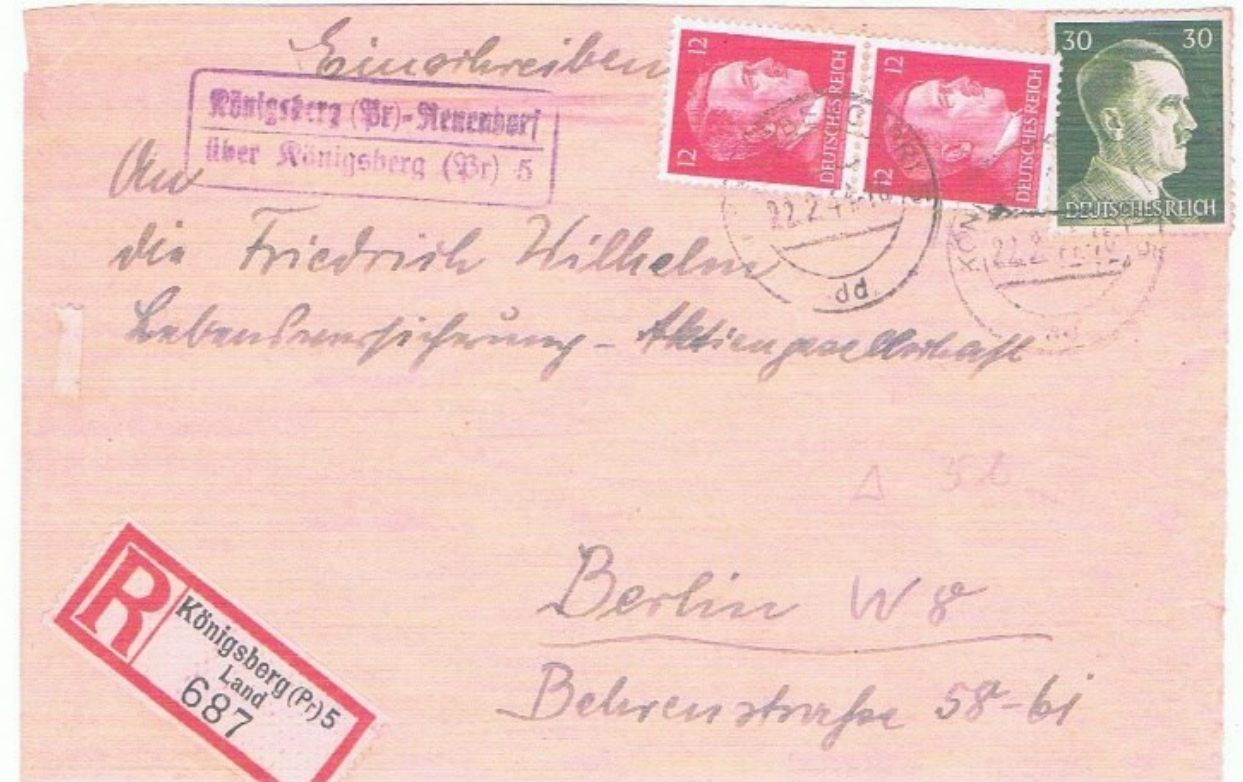 Einschreiben
Königsberg (Pr)-Neuendorf
über Königsberg (Pr) 5
12
12
DEUTSCHES REICH
12
12
DEUTSCHES REICH
30 30
DEUTSCHES REICH
22.2.44
22.2
An
die Friedrich Wilhelm
Lebensversicherung - Aktiengesellschaft
Berlin W 8
Behrenstraße 58-61
R
Königsberg (Pr) 5
Land
687